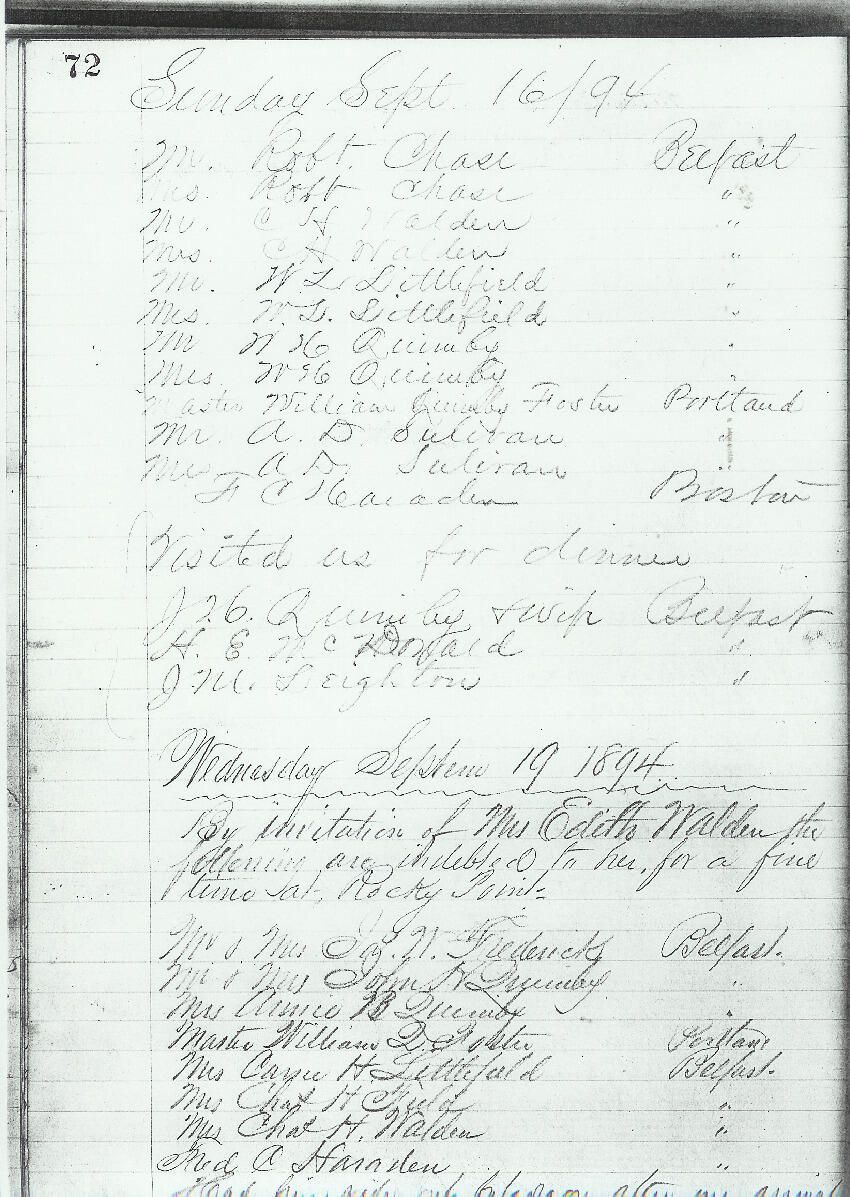 72
Sunday Sept. 16/94.
Mr. Robt. Chase Belfast
Mrs. Robt Chase "
Mr. C H Walden "
Mrs. C H Walden "
Mr. W L. Littlefield "
Mrs. W. L. Littlefield "
Mr W H Quimby "
Mrs W H Quimby "
Master William Quimby Foster Portland
Mr. A. D. Sulivan "
Mrs A D. Sulivan "
F C Haraden Boston
Visited us for dinner
Quimby & wife Belfast
H. E. McDonald "
J. M. Leighton "
Wednesday Septem 19 1894.
By invitation of Mrs Edith Walden the
following are indebted to her, for a fine
time at, Rocky Point.
Mr & Mrs Jas. N. Fredericks Belfast.
Mr & Mrs John H Quimby "
Mrs Annie B Quimby "
Master William Q. Foster Portland
Mrs Carrie H. Littlefield Belfast.
Mrs Chas H "
Mrs Chas H. Walden "
Fred C Haraden "
after our arrival